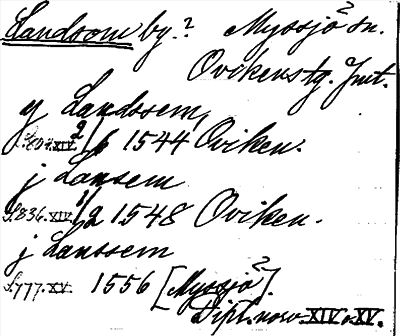 Landsom by? Myssjö2 sn.
Ovikens tg. Jmt.
y Landssem,
XIV. 2/6 1544 Oviken.
j Lansem
S.836. XIV. 1/2 1548 Oviken.
j Lanssem
S.777. XV. 1556 [Myssjö2].
Dipl. norv XIV o XV.